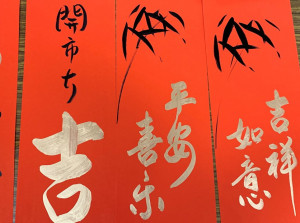 吉祥
如意
平安
喜乐
開市大吉